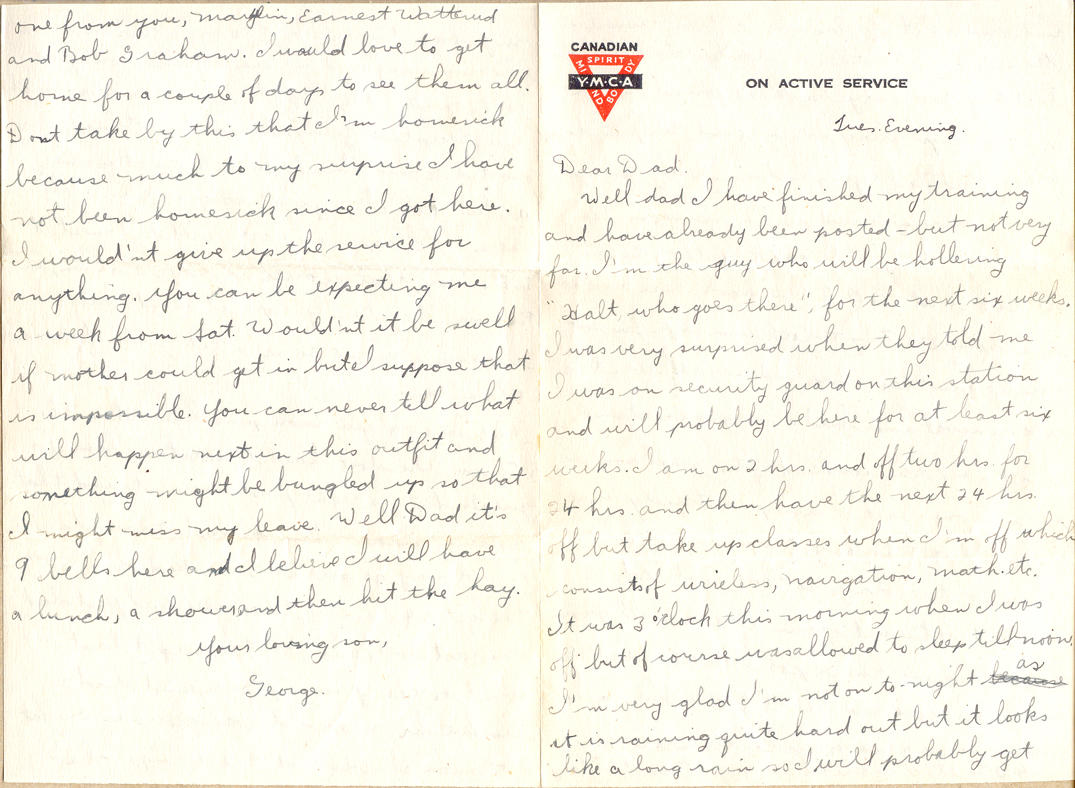 one from you, Marylin, Earnest Watterud
and Bob Graham. I would love to get
home for a couple of days to see them all.
Dont take by this that I'm homesick
because much to my surprise I have
not been homesick since I got here.
I would'nt give up the service for
anything. You can be expecting me
a week from Sat. Would'nt it be swell
if mother could get in but I suppose that
is impossible. You can never tell what
will happen next in this outfit and
something might be bungled up so that
I might miss my leave. Well Dad it's
9 bells here and I believe I will have
a lunch, a shower, and then hit the hay.
Your loving son,
George.
CANADIAN
SPIRIT
MIND
BODY
Y·M·C·A
ON ACTIVE SERVICE
Tues. Evening.
Dear Dad.
Well dad I have finished my training
and have already been posted - but not very
far. I'm the guy who will be hollering
"Halt, who goes there", for the next six weeks.
I was very surprised when they told me
I was on security guard on this station
and will probably be here for at least six
weeks. I am on 2 hrs. and off two hrs. for
24 hrs. and then have the next 24 hrs.
off but take up classes when I'm off which
consists of wireless, navigation, math. etc.
It was 3 o'clock this morning when I was
off but of course was allowed to sleep till noon.
I'm very glad I'm not on to-night because as
it is raining quite hard out but it looks
like a long rain so I will probably get